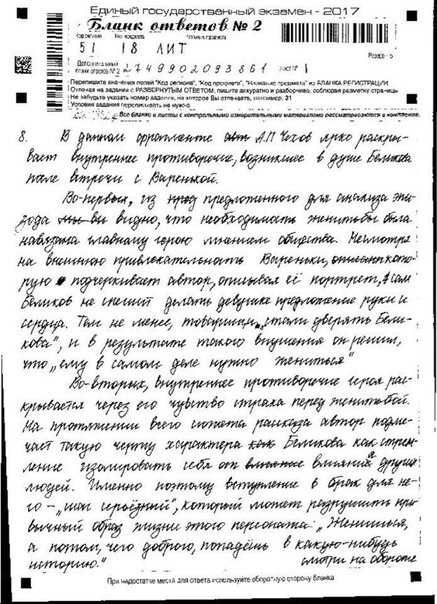 Единый государственный экзамен - 2017
Бланк ответов № 2
Код региона Код предмета Название предмета
51 18 ЛИТ
Резерв - 5
Дополнительный бланк ответов № 2 Лист № 1
Перепишите значения полей "Код региона", "Код предмета", "Название предмета" из БЛАНКА РЕГИСТРАЦИИ
Отвечая на задания с РАЗВЕРНУТЫМ ОТВЕТОМ, пишите аккуратно и разборчиво, соблюдая разметку страницы
Не забудьте указать номер задания, на которое Вы отвечаете, например, 31
Условия задания переписывать не нужно
Все бланки и листы с контрольными измерительными материалами рассматриваются в комплекте
8. В данном фрагменте А.П. Чехов ярко раскры-
вает внутреннее противоречие, возникшее в душе Беликова
после встречи с Варенькой.
Во-первых, из предложенного для анализа эпи-
зода видно, что необходимость женитьбы была
навязана главному герою мнением общества. Несмотря
на внешнюю привлекательность Вареньки, кото-
рую подчеркивает автор, описывая её портрет, сам
Беликов не спешит делать девушке предложение руки и
сердца. Тем не менее, товарищи „стали уверять Бели-
кова", и в результате такого внушения он решил,
что „ему в самом деле нужно жениться"
Во-вторых, внутреннее противоречие героя рас-
крывается через его чувство страха перед женитьбой.
На протяжении всего сюжета рассказа автор подме-
чает такую черту характера Беликова как стрем-
ление изолировать себя от влияния других
людей. Именно поэтому вступление в брак для не-
го – „шаг серьёзный", который может разрушить при-
вычный образ жизни этого персонажа: „Женишься,
а потом, чего доброго, попадёшь в какую-нибудь
историю."
смотри на обороте
При недостатке места для ответа используйте оборотную сторону бланка